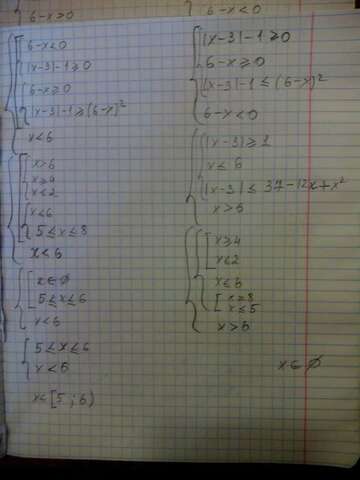 6-x≥0
6-x<0
6-x<0
|x-3|-1≥0
6-x≥0
|x-3|-1≥(6-x)²
x<6
x>6
x≥4
x≤2
x≤6
5≤x≤8
x<6
x∈∅
5≤x≤6
x<6
5≤x≤6
x<6
x∈[5;6)
|x-3|-1≥0
6-x≥0
|x-3|-1≤(6-x)²
6-x<0
|x-3|≥1
x≤6
|x-3|≤37-12x+x²
x>6
x≥4
x≤2
x≤6
x≥8
x≤5
x>6
x∈∅